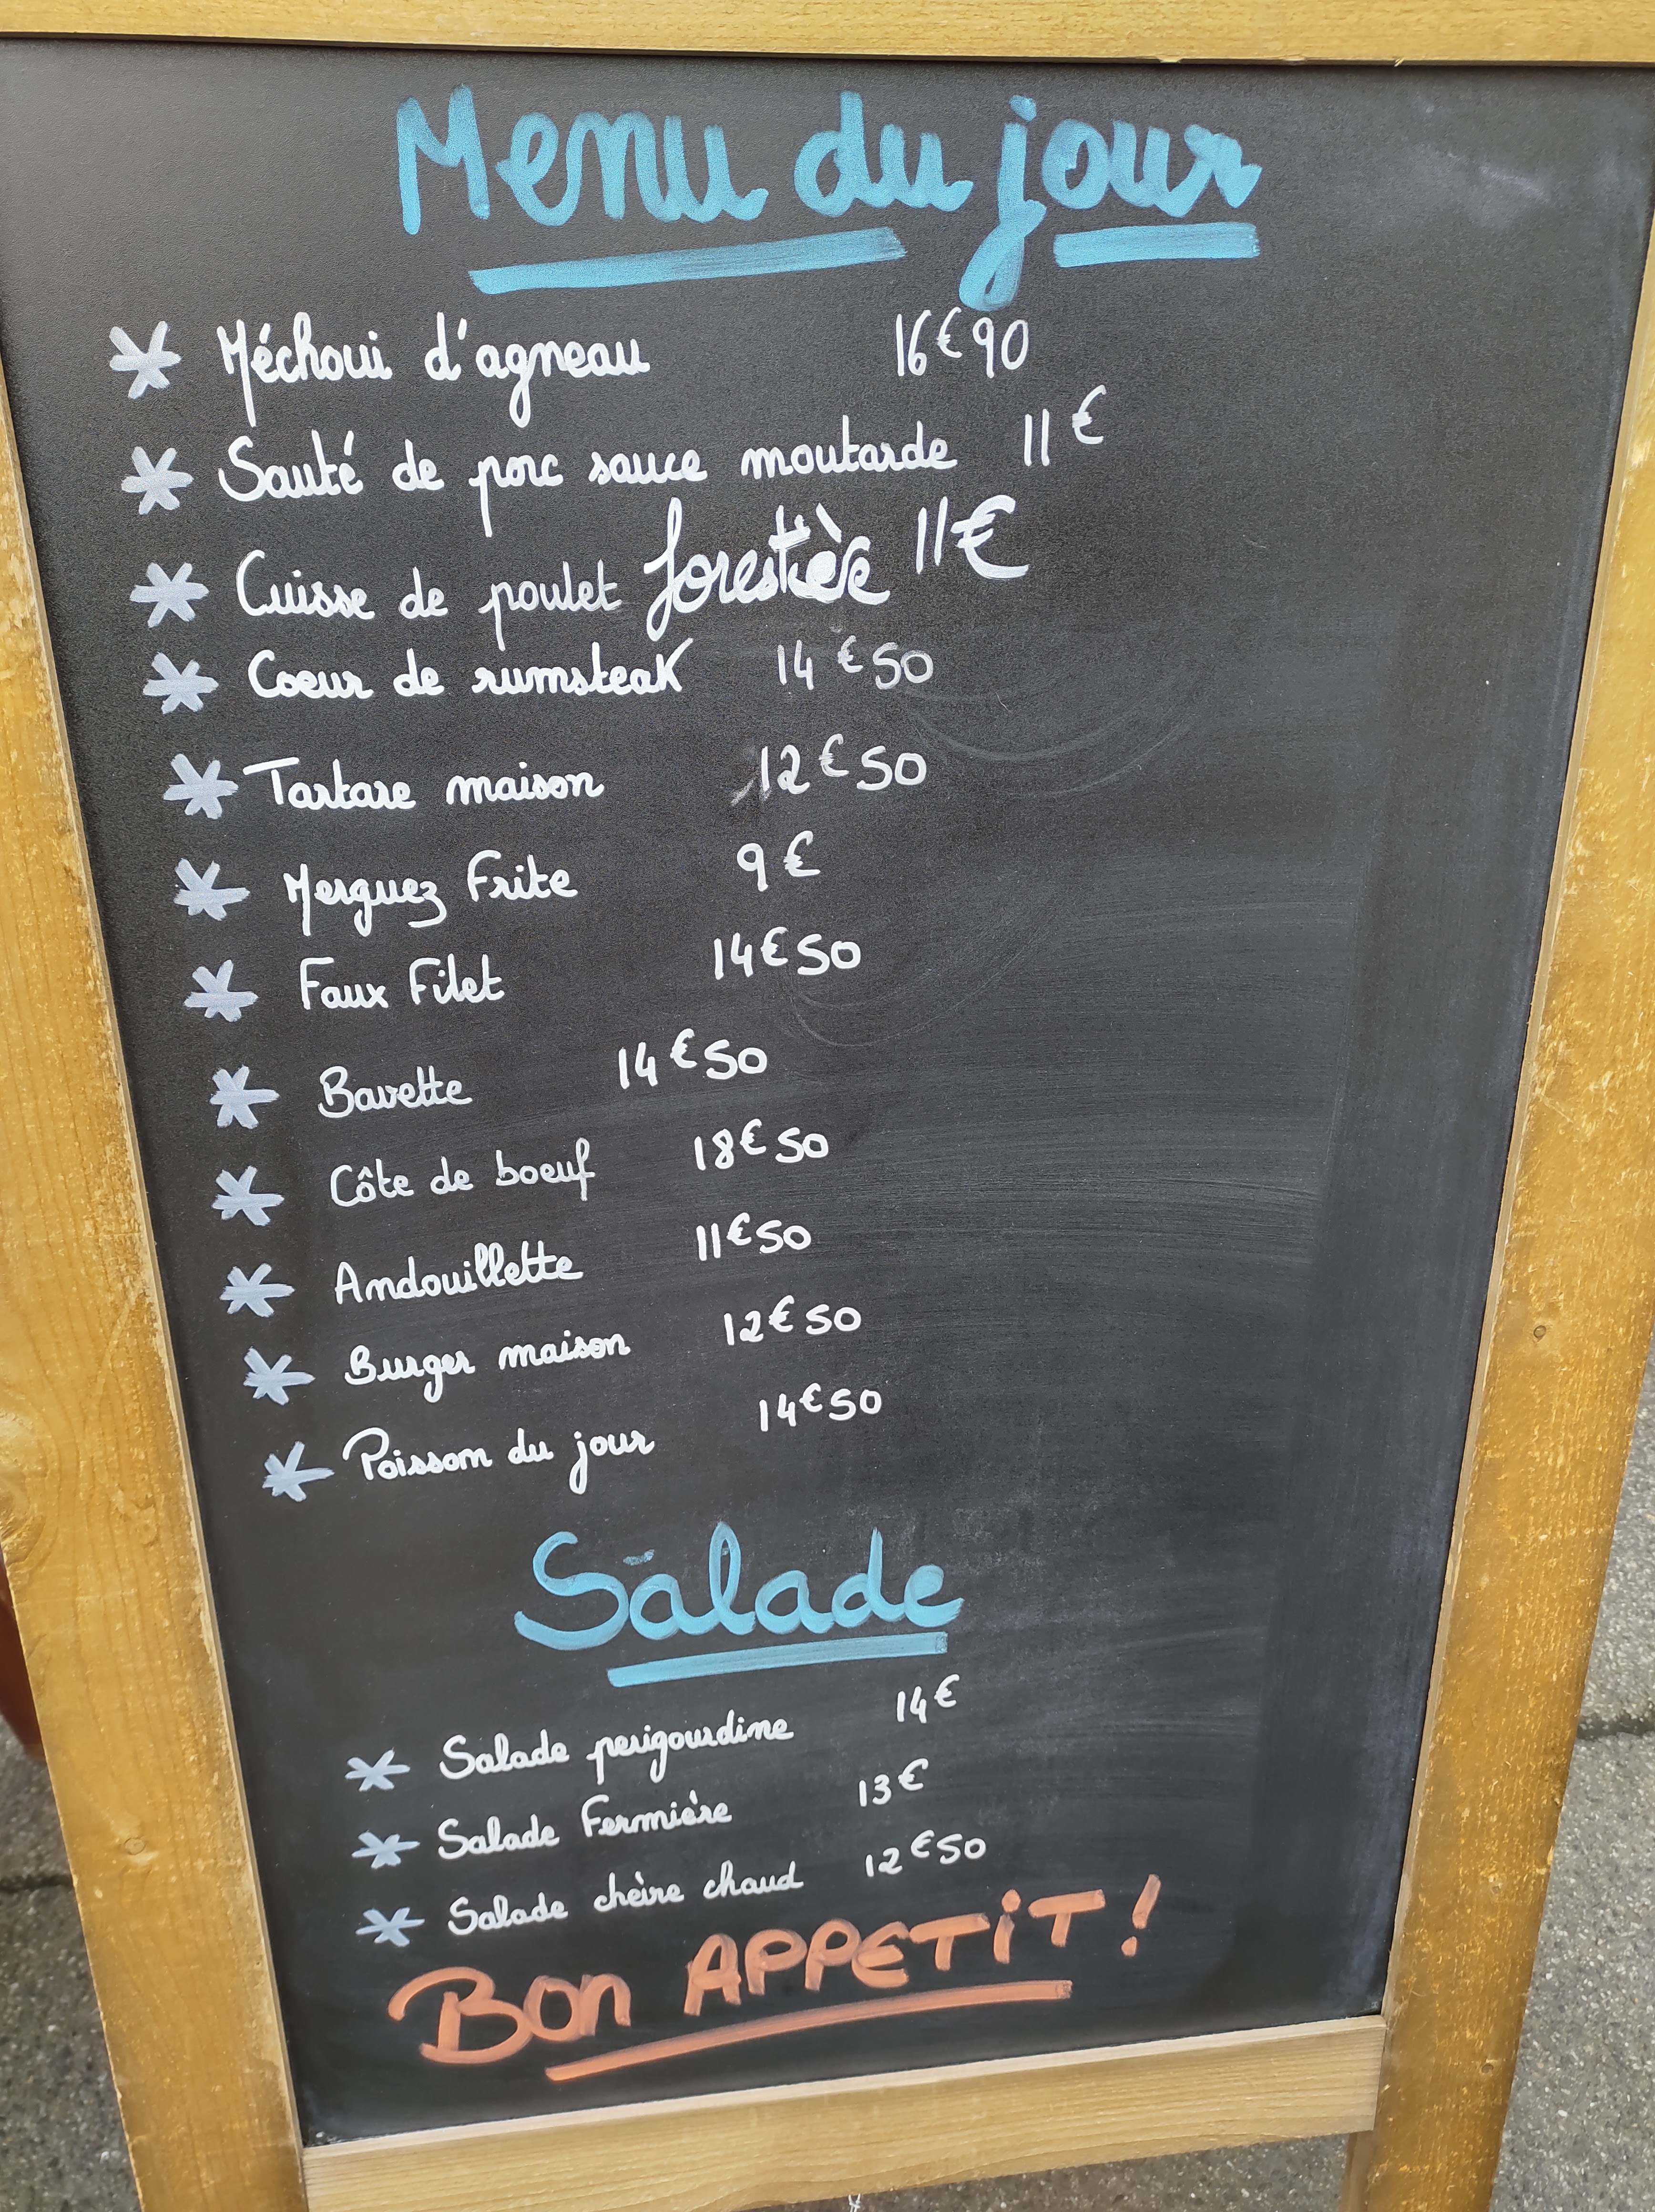 Menu du jour
* Méchoui d'agneau 16€90
* Sauté de porc sauce moutarde 11€
* Cuisse de poulet forestière 11€
* Coeur de rumsteak 14€50
* Tartare maison 12€50
* Merguez Frite 9€
* Faux Filet 14€50
* Bavette 14€50
* Côte de boeuf 18€50
* Andouillette 11€50
* Burger maison 12€50
* Poisson du jour 14€50
Salade
* Salade perigourdine 14€
* Salade Fermière 13€
* Salade chèvre chaud 12€50
BON APPETIT !